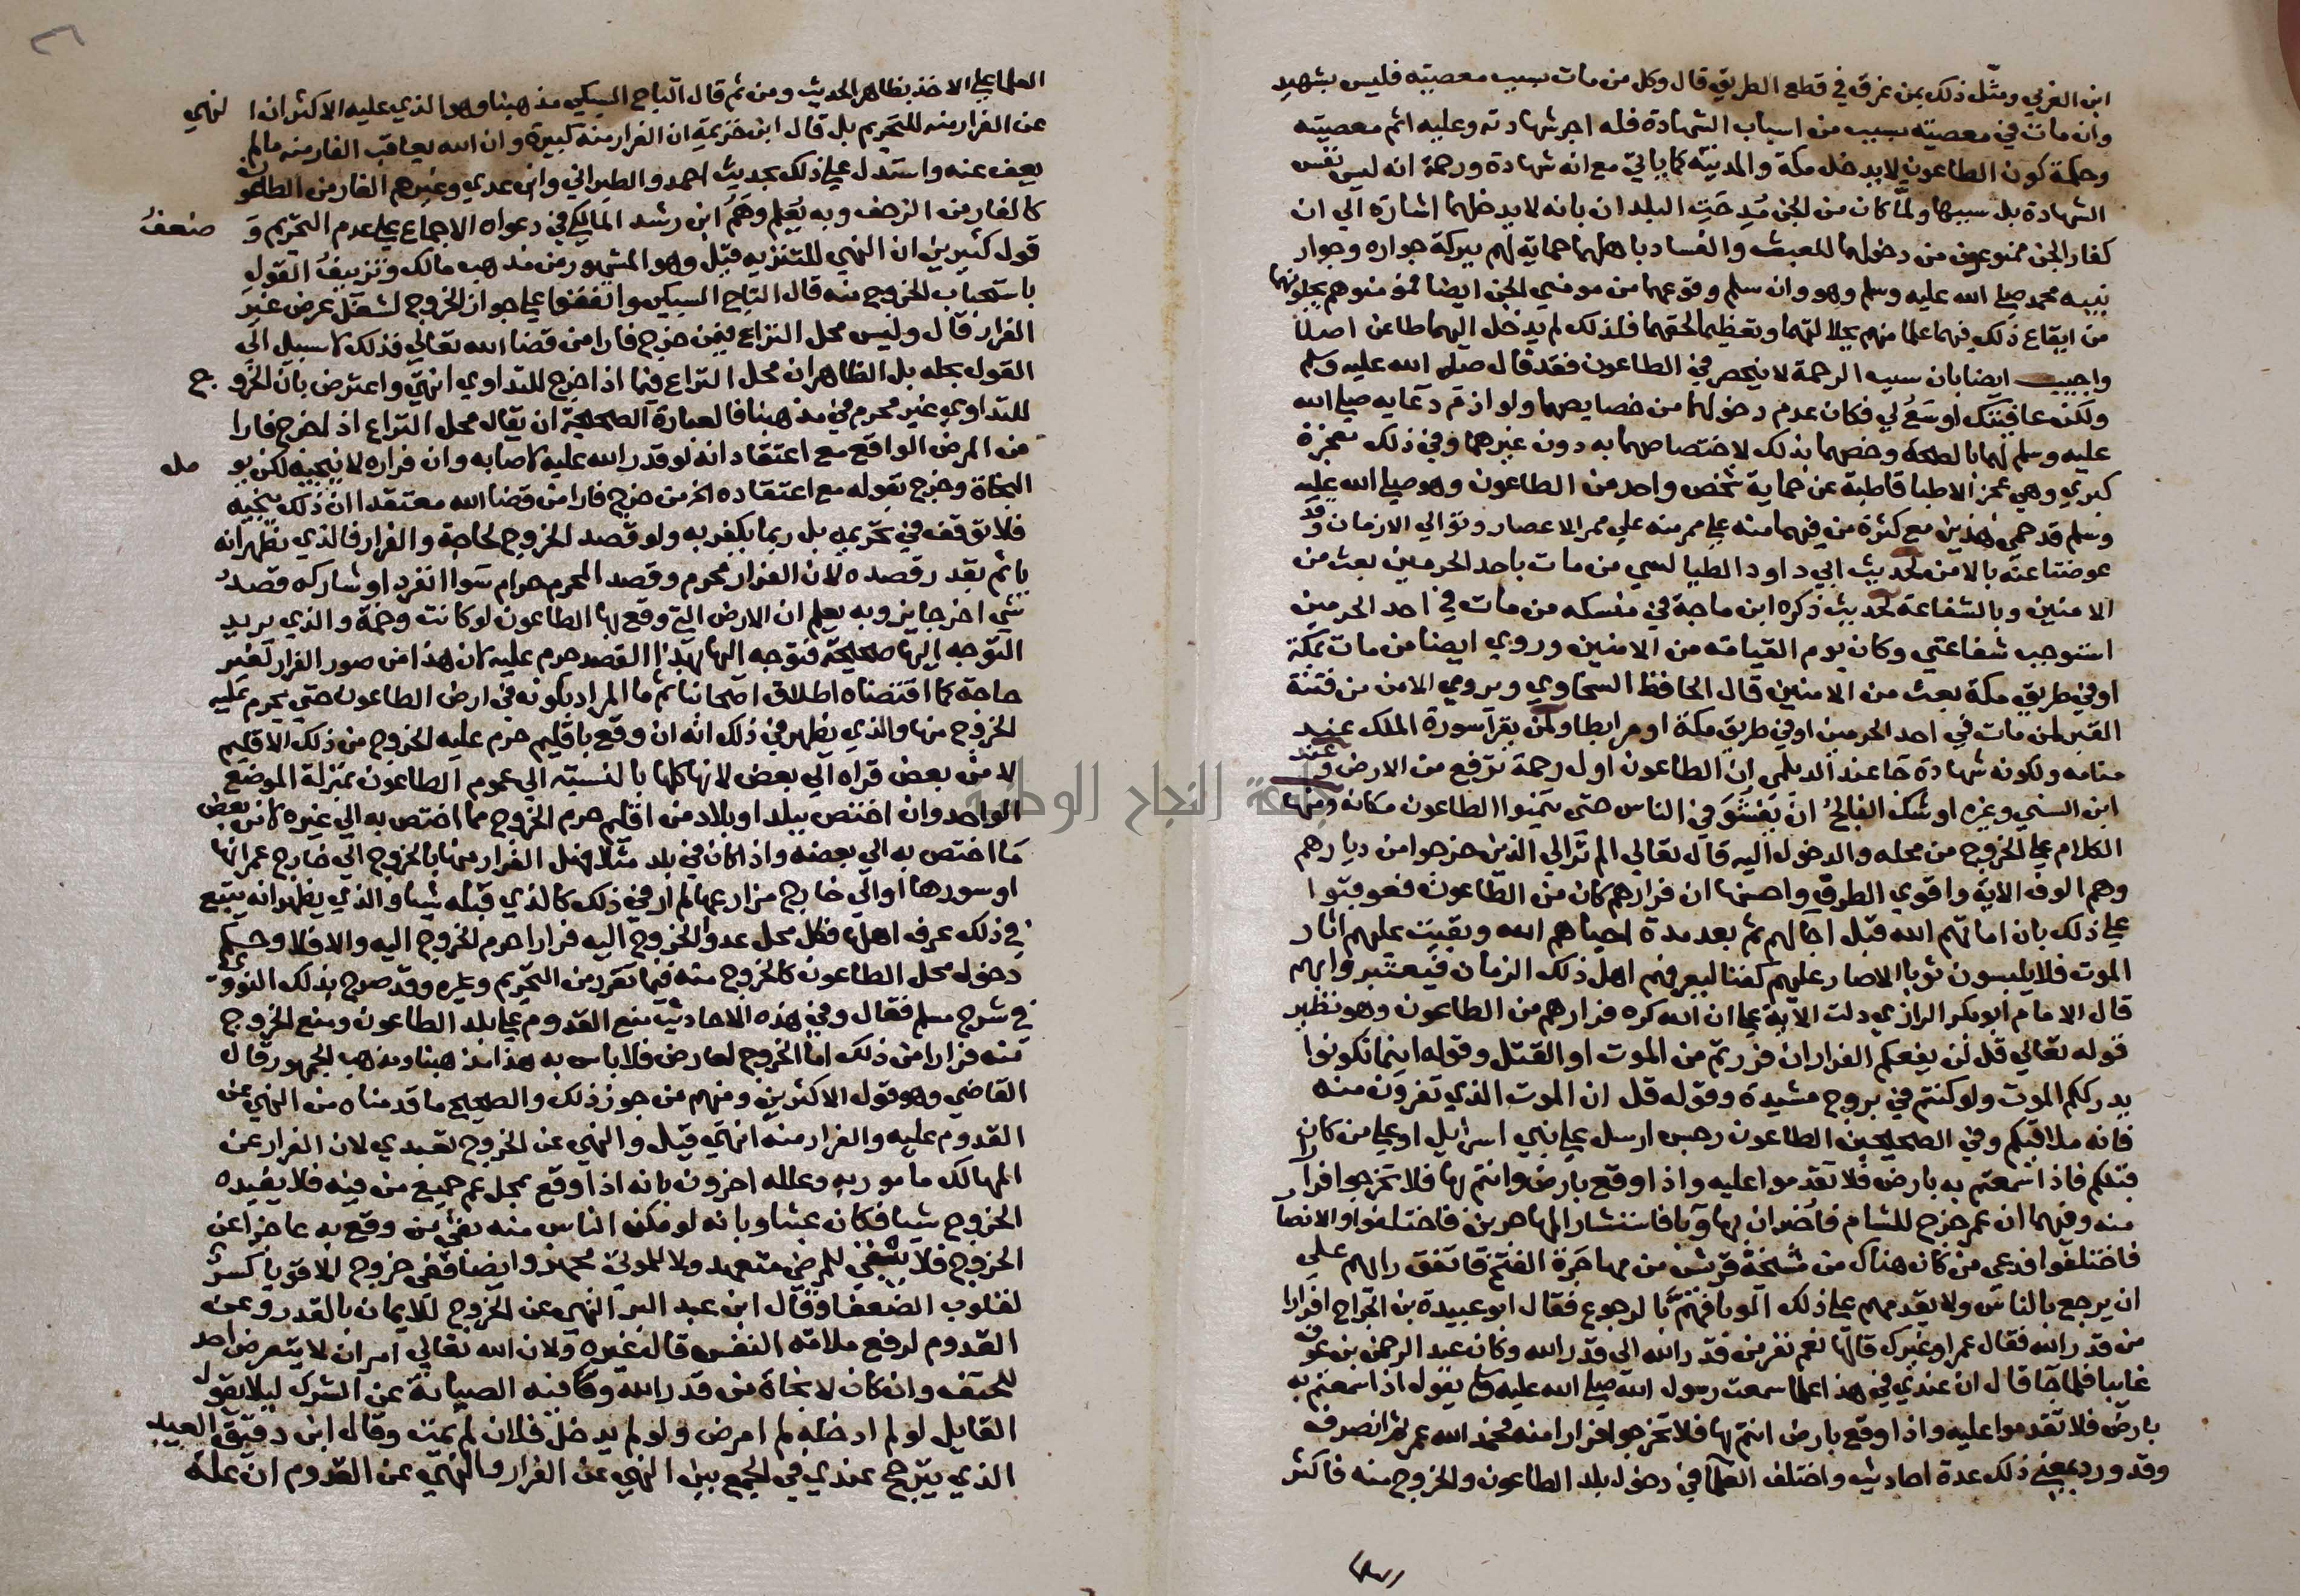 ابن العربي ومثّل ذلك بمن غرق في قطع الطريق قال وكل من مات بسبب معصيته فليس بشهيد
وان مات في معصيته بسبب من اسباب الشهادة فله اجر شهادته وعليه اثم معصيته
وحكمة كون الطاعون لا يدخل مكة والمدينة كما ياتي مع انه شهادة ورحمة انه ليس نفس
الشهادة بل سببها ولمّا كان من الجن مُدِحَتِ البلدان بانه لا يدخلهما اشارة الي ان
كفار الجن ممنوعون من دخولهما للعبث والفساد باهلهما حماية لهم ببركة جواره وجوار
نبيه محمد صلي الله عليه وسلم وهو وان سلم وقوعهما من مومني الجن ايضا فمومنوهم يجلونها
من ايقاع ذلك فيهما علما منهم بجلالتهما وتعظيما لحقهما فلذلك لم يدخل اليهما طاعن اصلا
واجيب ايضا بان سبب الرحمة لا ينحصر في الطاعون فقد قال صلي الله عليه وسلم
ولكن عافيتك اوسَعُ لي فكان عدم دخولهما من خصايصهما ولوازم دعايه صلي الله
عليه وسلم لهما بالصحة وخصهما بذلك لاختصاصهما به دون غيرهما وفي ذلك معجزة
كبري وهي عجز الاطبا قاطبة عن حماية شخص واحد من الطاعون وهو صلي الله عليه
وسلم قد حمي هذين مع كثرة من فيهما منه علي ممر الاعصار وتوالي الازمان وقد
عوضتا عنه بالامن لحديث ابي داود الطيالسي من مات باحد الحرمين بعث من
الامنين وبالشفاعة لحديث ذكره ابن ماجة في منسكه من مات في احد الحرمين
استوجب شفاعتي وكان يوم القيامه من الامنين وروي ايضا من مات بمكة
او في طريق مكة بعث من الامنين قال الحافظ السخاوي ويروي الامن من فتنة
القبر لمن مات في احد الحرمين او في طريق مكة او مرابطا ولمن يقرا سورة الملك عند
منامه ولكونه شهادة جا عند الديلمي ان الطاعون اول رحمة ترفع من الارض وعند
ابن السني وغيره اوشك الفالجُ ان يَفْشُوَ في الناس حتي يتمنوا الطاعون مكانه ومنها
الكلام علي الخروج من محله والدخول اليه قال تعالي الم تر الي الذين خرجوا من ديارهم
وهم الوف الاية واقوي الطرق واصحها ان فرارهم كان من الطاعون فعوقبوا
علي ذلك بان اماتهم الله قبل اجالهم ثم بعد مدة احياهم الله وبقيت عليهم اثار
الموت فلا يلبسون ثوبا الا صار عليهم كفنا ليعرفهم اهل ذلك الزمان فيعتبروا بهم
قال الامام ابو بكر الرازي دلت الاية علي ان الله كره فرارهم من الطاعون وهو نظير
قوله تعالي قل لن ينفعكم الفرار ان فررتم من الموت او القتل وقوله اينما تكونوا
يدرككم الموت ولو كنتم في بروج مشيدة وقوله قل ان الموت الذي تفرون منه
فانه ملاقيكم وفي الصحيحين الطاعون رجس ارسل علي بني اسرائيل او علي من كان
قبلكم فاذا سمعتم به بارض فلا تقدموا عليه واذا وقع بارض وانتم بها فلا تخرجوا فرارا
منه وفيهما ان عمر خرج للشام فاُخبر ان بها وَبا فاستشار المهاجرين فاختلفوا والانصار
فاختلفوا فدعي من كان هناك من مشيخة قريش من مهاجَرة الفتح فاتفق رايهم علي
ان يرجع بالناس ولا يقدمهم علي ذلك الوبا فهَمّ بالرجوع فقال ابو عبيدة بن الجراح افرارا
من قدر الله فقال عمر لو غيرك قالها نعم نفر من قدر الله الي قدر الله وكان عبد الرحمن بن عوف
غايبا فلما جا قال ان عندي في هذا علما سمعت رسول الله صلي الله عليه وسلم يقول اذا سمعتم به
بارض فلا تقدموا عليه واذا وقع بارض انتم بها فلا تخرجوا فرارا منه فحمد الله عمر ثم انصرف
وقد ورد بمعني ذلك عدة احاديث واختلف العلما في دخول بلد الطاعون والخروج منه فاكثر
العلما علي الاخذ بظاهر الحديث ومن ثم قال التاج السبكي مذهبنا وهو الذي عليه الاكثر ان النهي
عن الفرار منه للتحريم بل قال ابن خزيمة ان الفرار منه كبيرة وان الله يعاقب الفار منه ما لم
يعف عنه واستدل علي ذلك بحديث احمد والطبراني وابن عدي وغيرهم الفار من الطاعون
كالفار من الزحف وبه يُعلم وَهَمُ ابن رشد المالكي في دعواه الاجماع علي عدم التحريم وَضعفُ
قول كثيرين ان النهي للتنزيه قيل وهو المشهور من مذهب مالك وتزييفُ القول
باستحباب الخروج منه قال التاج السبكي واتفقوا علي جواز الخروج لشغل عرض غير
الفرار قال وليس محل النزاع فيمن خرج فارا من قضا الله تعالي فذلك لا سبيل الي
القول بحله بل الظاهر ان محل النزاع فيما اذا خرج للتداوي انتهي واعترض بان الخروج
للتداوي غير محرم في مذهبنا فالعبارة الصحيحة ان يقال محل النزاع اذا خرج فارا
من المرض الواقع مع اعتقاد انه لو قدر الله عليه لاصابه وان فراره لا ينجيه لكن يومل
النجاة وخرج بقوله مع اعتقاده الخ من خرج فارا من قضا الله معتقدا ان ذلك ينجيه
فلا توقف في تحريمه بل ربما يكفر به ولو قصد الخروج لحاجة والفرار فالذي يظهر انه
ياثم بقدر قصده لان الفرار محرم وقصد المحرم حرام سَوا انفرد او شاركه قصدُ
شي اخر جايز وبه يعلم ان الارض التي وقع بها الطاعون لو كانت وخمة والذي يريد
التوجه اليها صحيحة فتوجه اليها بهذا القصد حرم عليه لان هذا من صور الفرار لغير
حاجة كما اقتضاه اطلاق اصحابنا ثم ما المراد بكونه في ارض الطاعون حتي يحرم عليه
الخروج منها والذي يظهر في ذلك انه ان وقع باقليم حرم عليه الخروج من ذلك الاقليم
لا من بعض قراه الي بعض لانها كلها بالنسبة الي عموم الطاعون بمنزلة الموضع
الواحد وان اختص ببلد او بلاد من اقليم حرم الخروج مما اختص به الي غيره لا من بعض
مَا اختص به الي بعضه واذا كان في بلد مثلا فهل الفرار منها بالخروج الي خارج عمرانها
او سورها او الي خارج مزارعها لم ار في ذلك كالذي قبله شيا والذي يظهر انه يتبع
في ذلك عرف اهلها فكل محل عدوا الخروج اليه فرارا حرم الخروج اليه والا فلا وحكم
دخول محل الطاعون كالخروج منه فيما تقرر من التحريم وغيره وقد صرح بذلك النووي
في شرح مسلم فقال وفي هذه الاحاديث منع القدوم علي بلد الطاعون ومنع الخروج
منه فرارا من ذلك اما الخروج لعارض فلا باس به هذا مذهبنا ومذهب الجمهور قال
القاضي وهو قول الاكثرين ومنهم من جوز ذلك والصحيح ما قدمناه من النهي عن
القدوم عليه والفرار منه انتهي قيل والنهي عن الخروج تعبدي لان الفرار عن
المهالك مامور به وعلله اخرون بانه اذا وقع بمحل عم جميع من فيه فلا يفيده
الخروج شيا فكان عبثا وبانه لو مكن الناس منه بقي من وقع به عاجزا عن
الخروج فلا يبقي للمرضي متعهد ولا للموتي مجهز وايضا ففي خروج الاقويا كسرٌ
لقلوب الضعفا وقال ابن عبد البر النهي عن الخروج للايمان بالقدر وعن
القدوم لرفع ملامة النفس قال غيره ولان الله تعالي امر ان لا يتعرض احد
للحتف وان كان لا نجاة من قدر الله وفا فيه الصيانة عن الشرك ليلا يقول
القايل لو لم ادخله لم امرض ولو لم يدخل فلان لم يمت وقال ابن دقيق العيد
الذي يترجح عندي في الجمع بين النهي عن الفرار والنهي عن القدوم ان علة
جامعة النجاح الوطنية